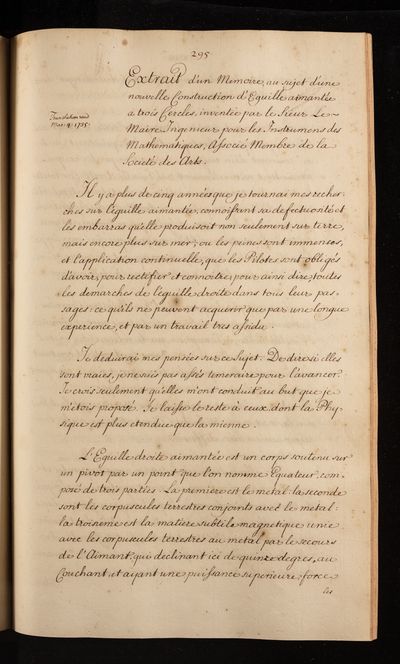 295
Extrait d'un Memoire, au sujet d'une
nouvelle Construction d'Equille aimantée
a trois Cercles, inventée par le Sieur Le-
Maire Ingenieur pour les Instrumens des
Mathematiques, Associé Membre de la
Societé des Arts.
Translation read
1735.
Il y a plus de cinq années que je tournai mes recher-
ches sur l'équille aimantée, connoissant sa defectuosité et
les embarras qu'elle produisoit non seulement sur terre,
mais encore plus sur mer; ou les peines sont immenses,
et l'application continuelle, que les Pilotes sont obligés
d'avoir, pour rectifier et connoitre, pour ainsi dire, toutes
les demarches de l'equille droite dans tous leur pas-
sages: ce qu'ils ne peuvent acquerir que par une longue
experience, et par un travail tres assidu.
Je deduirai mes pensées sur ce Sujet. De dire si elles
sont vraies, je ne suis pas assés temeraire pour l'avancer.
Je crois seulement qu'elles m'ont conduit au but que je
m'etois proposé. Je laisse le reste à ceux dont la Phy-
sique est plus etendue que la mienne.
L'Equille droite aimantée est un corps soutenu sur
un pivot par un point que l'on nomme Equateur, com-
posé de trois parties. La premiere est le metal: la seconde
sont les corpuscules terrestres conjoints avec le metal:
la troisieme est la matiere subtile magnetique unie
avec les corpuscules terrestres au metal par le secours
de l'Aimant, qui declinant ici de quinze degres, au
Couchant, et aijant une puissance superieure, force
les